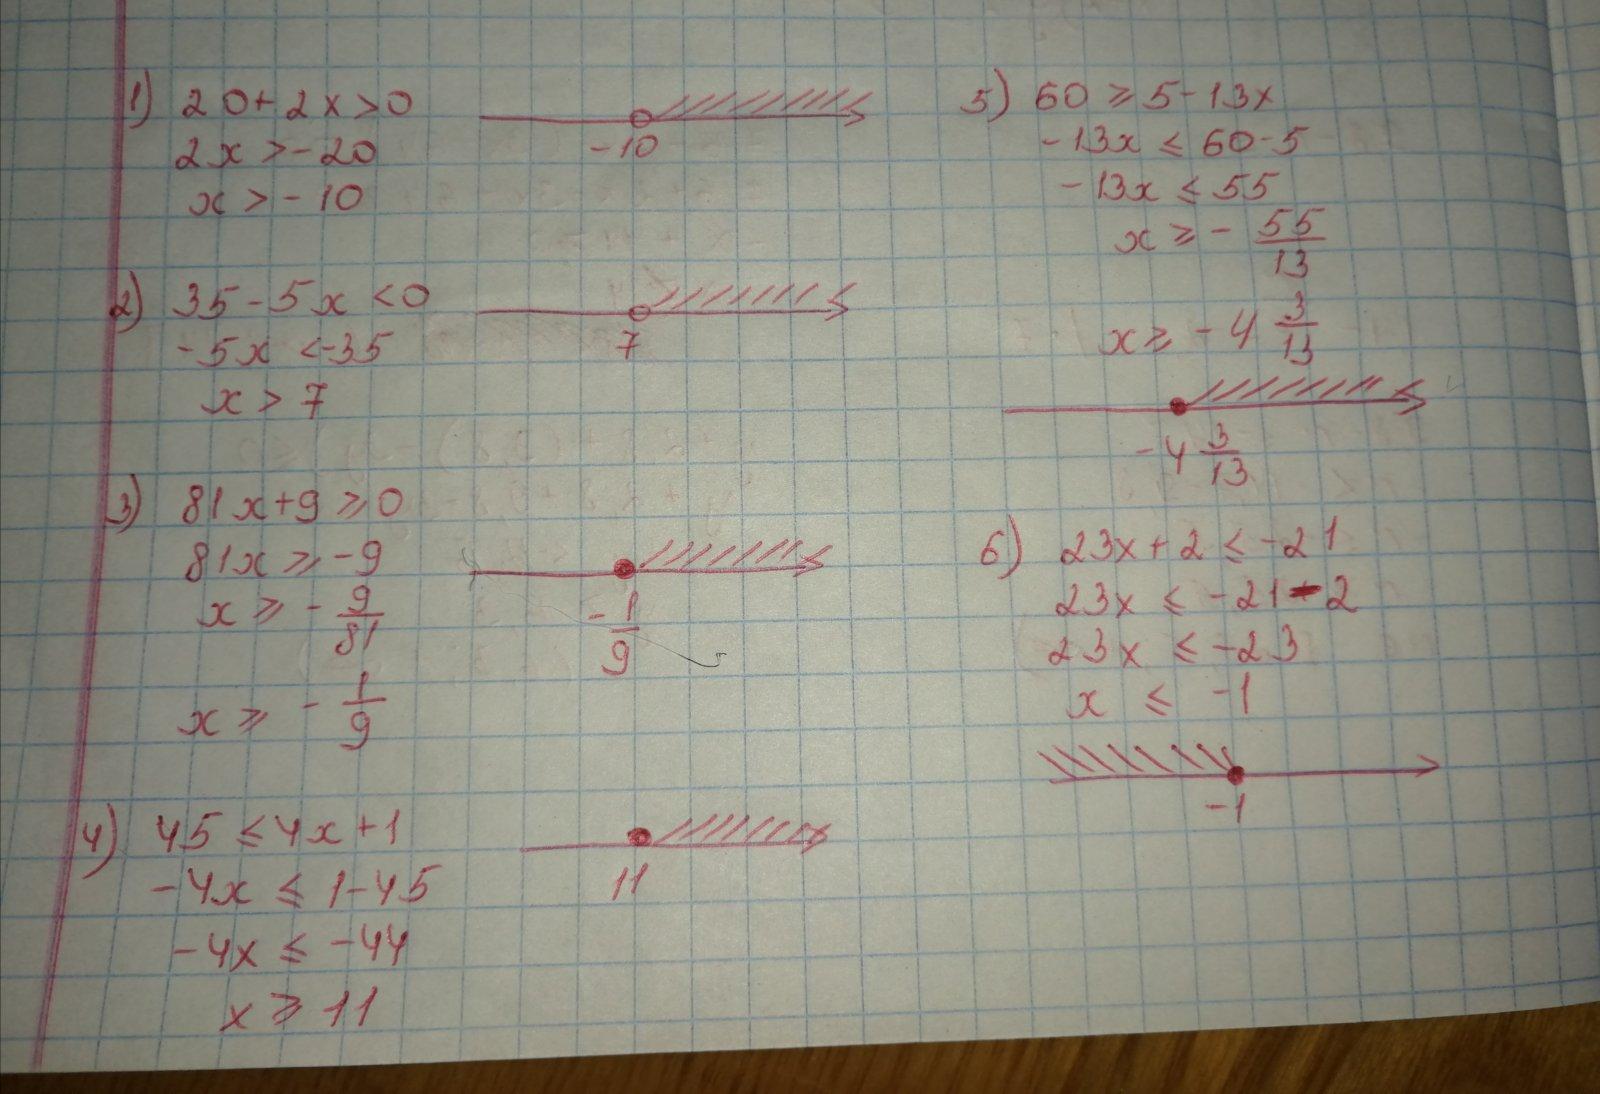 1) 20+2x>0
2x>-20
x>-10
-10
2) 35-5x<0
-5x<-35
x>7
7
3) 81x+9⩾0
81x⩾-9
x⩾-9/81
x⩾-1/9
-1/9
4) 45⩽4x+1
-4x⩽1-45
-4x⩽-44
x⩾11
11
5) 60⩾5-13x
-13x⩽60-5
-13x⩽55
x⩾-55/13
x⩾-4 3/13
-4 3/13
6) 23x+2⩽-21
23x⩽-21-2
23x⩽-23
x⩽-1
-1